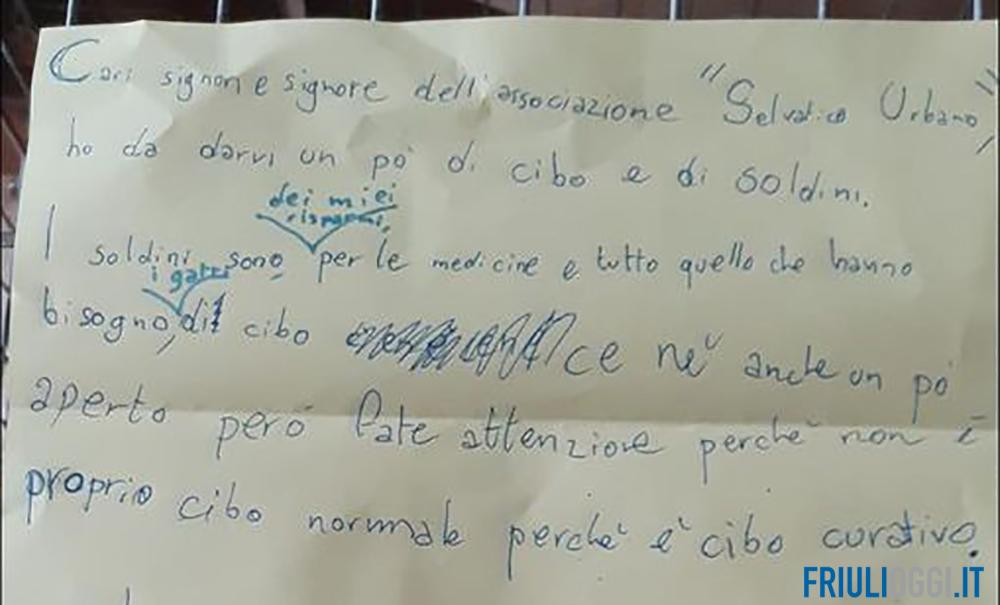 Cari signori e signore dell'associazione "Selvatico Urbano",
ho da darvi un po' di cibo e di soldini.
dei miei
risparmi,
I soldini sono per le medicine e tutto quello che hanno
i gatti
bisogno, di cibo ce ne' anche un po'
aperto però fate attenzione perchè non è
proprio cibo normale perchè è cibo curativo.
FRIULIOGGI.IT